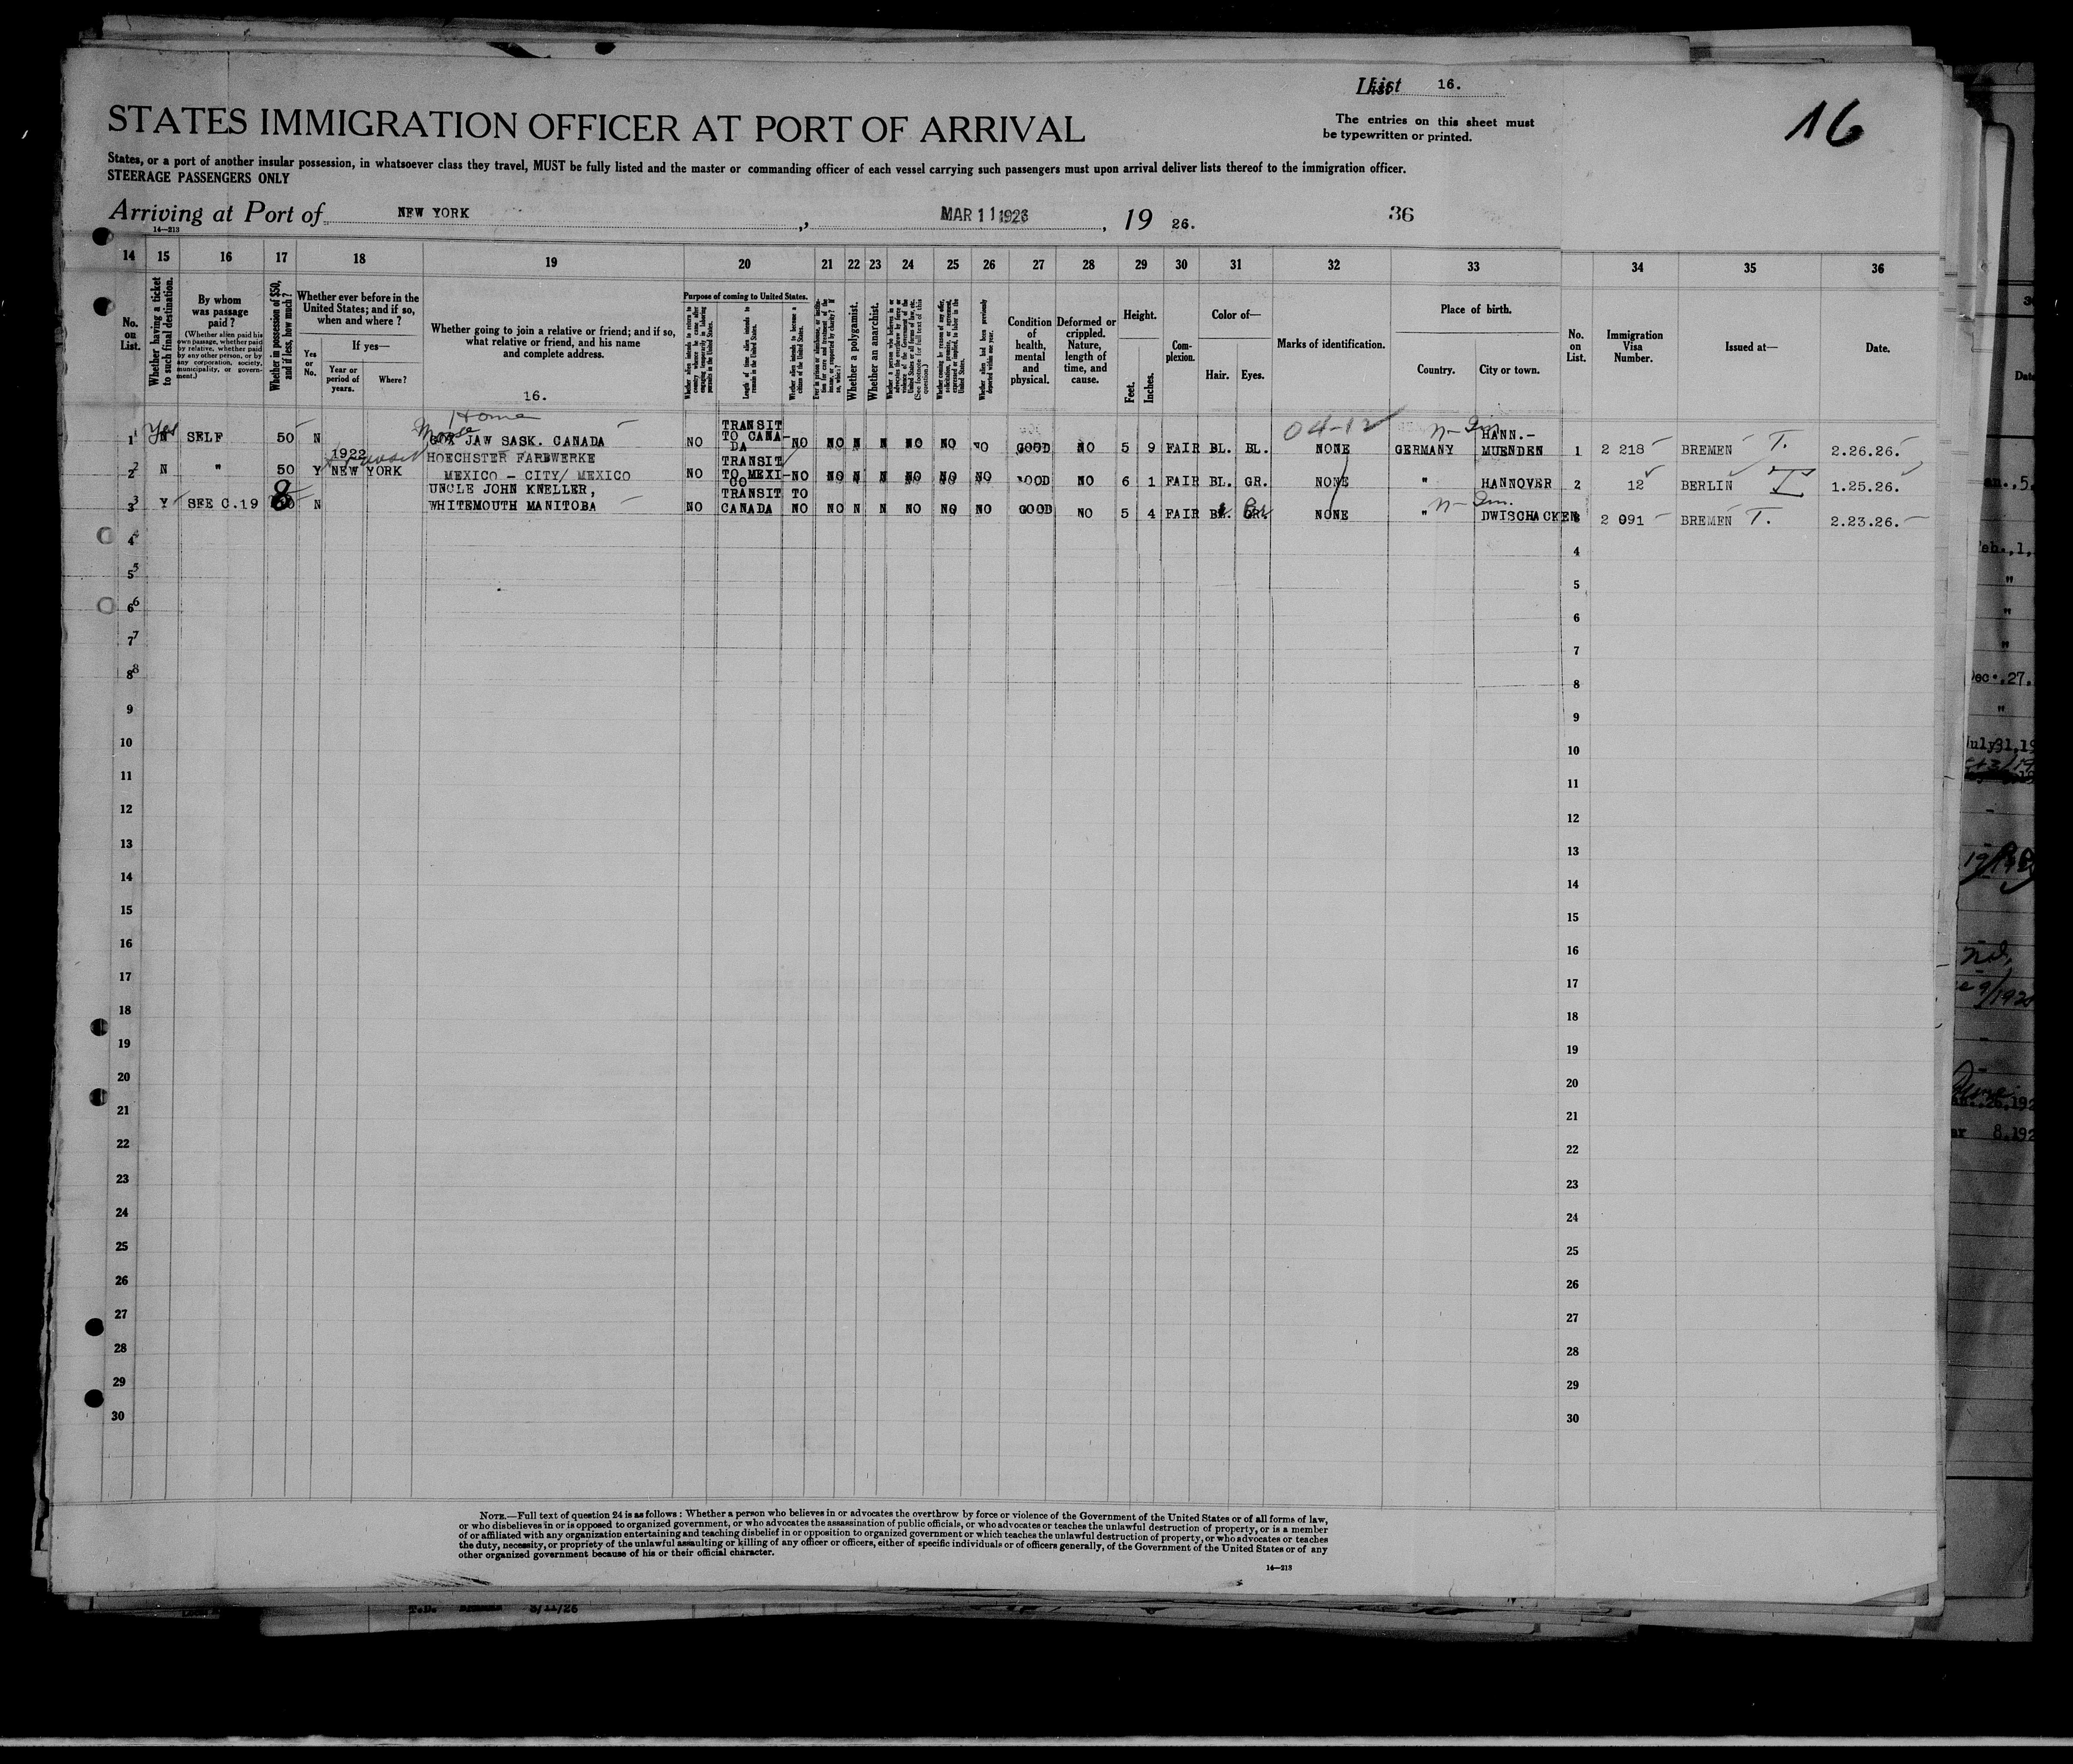 List 16.
16
STATES IMMIGRATION OFFICER AT PORT OF ARRIVAL
The entries on this sheet must
be typewritten or printed.
States, or a port of another insular possession, in whatsoever class they travel, MUST be fully listed and the master or commanding officer of each vessel carrying such passengers must upon arrival deliver lists thereof to the immigration officer.
STEERAGE PASSENGERS ONLY
Arriving at Port of NEW YORK, MAR 11 1926, 19 26. 36
14—213
14 15 16 17 18 19 20 21 22 23 24 25 26 27 28 29 30 31 32 33 34 35 36
No. on List.
Whether having a ticket to such final destination.
By whom was passage paid?
(Whether alien paid his own passage, whether paid by relative, whether paid by any other person, or by any corporation, society, municipality, or government.)
Whether in possession of $50, and if less, how much?
Whether ever before in the United States; and if so, when and where?
Yes or No.
If yes—
Year or period of years.
Where?
Whether going to join a relative or friend; and if so, what relative or friend, and his name and complete address.
16.
Purpose of coming to United States.
Length of time alien intends to remain in the United States.
Whether alien intends to become a citizen of the United States.
Whether a polygamist.
Whether an anarchist.
Condition of health, mental and physical.
Deformed or crippled. Nature, length of time, and cause.
Height.
Feet.
Inches.
Complexion.
Color of—
Hair.
Eyes.
Marks of identification.
Place of birth.
Country.
City or town.
No. on List.
Immigration Visa Number.
Issued at—
Date.
1 Yes SELF 50 N Home Moose JAW SASK. CANADA NO TRANSIT TO CANA-DA NO NO N N NO NO NO GOOD NO 5 9 FAIR BL. BL. 04-12 NONE GERMANY HANN.-MUENDEN 1 2 218 BREMEN T. 2.26.26.
2 N " 50 Y 1922 NEW YORK HOECHSTER FARBWERKE MEXICO - CITY/ MEXICO NO TRANSIT TO MEXI-CO NO NO N N NO NO NO GOOD NO 6 1 FAIR BL. GR. NONE " HANNOVER 2 12 BERLIN T 1.25.26.
3 Y SEE C.19 8 N UNCLE JOHN KNELLER, WHITEMOUTH MANITOBA NO TRANSIT TO CANADA NO NO N N NO NO NO GOOD NO 5 4 FAIR BR. NONE " DWISCHACKEN 3 2 091 BREMEN T. 2.23.26.
4 4
5 5
6 6
7 7
8 8
9 9
10 10
11 11
12 12
13 13
14 14
15 15
16 16
17 17
18 18
19 19
20 20
21 21
22 22
23 23
24 24
25 25
26 26
27 27
28 28
29 29
30 30
NOTE.—Full text of question 24 is as follows: Whether a person who believes in or advocates the overthrow by force or violence of the Government of the United States or of all forms of law,
or who disbelieves in or is opposed to organized government, or who advocates the assassination of public officials, or who advocates or teaches the unlawful destruction of property, or is a member
of or affiliated with any organization entertaining and teaching disbelief in or opposition to organized government or which teaches the unlawful destruction of property, or who advocates or teaches
the duty, necessity, or propriety of the unlawful assaulting or killing of any officer or officers, either of specific individuals or of officers generally, of the Government of the United States or of any
other organized government because of his or their official character.
14—213